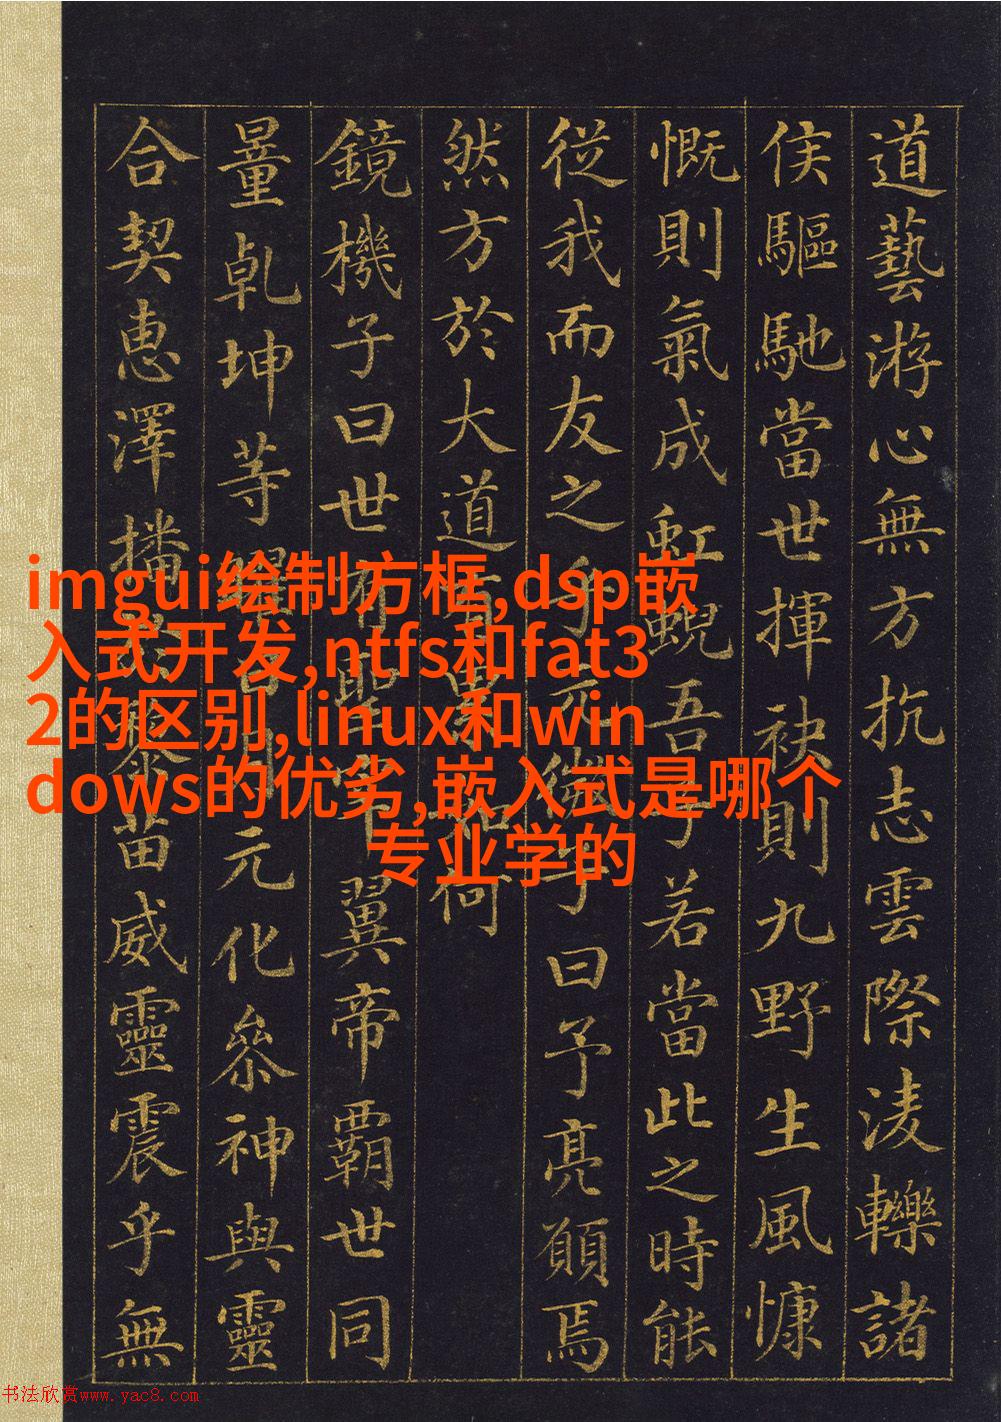 道藝游心無方抗志雲際淩轢諸
侯驅馳當世揮袂則九野生風慷
慨則氣成虹蜺吾子若當此之時能
從我而友之乎元微子曰予亮願焉
然方於大道有累如何
鏡機子曰世有聖宰翼帝霸世同
量乾坤等曜日月元化參神與靈
合契惠澤播於黎苗威靈震乎無
imgui绘制方框,dsp嵌
入式开发,ntfs和fat3
2的区别,linux和win
dows的优劣,嵌入式是哪个
专业学的
书法欣赏www.yac8.com